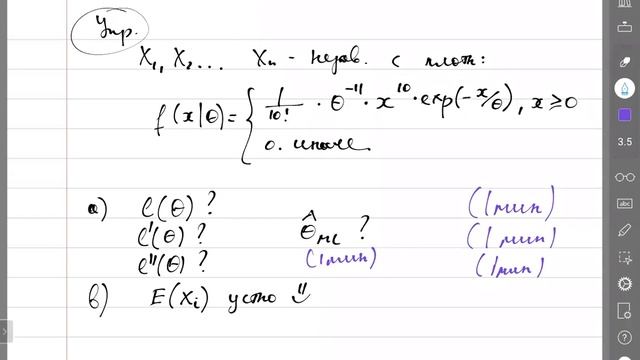 Упр.
X₁, X₂... Xₙ - незав. с плотн:
f(x|θ) = { 1/10! · θ⁻¹¹ · x¹⁰ · exp(-x/θ), x ≥ 0
0. иначе
а) ℓ(θ) ? (1 мин)
ℓ'(θ) ? θ̂ ML ? (1 мин)
ℓ''(θ) ? (1 мин) (1 мин)
в) E(Xᵢ) устно
3.5
abc